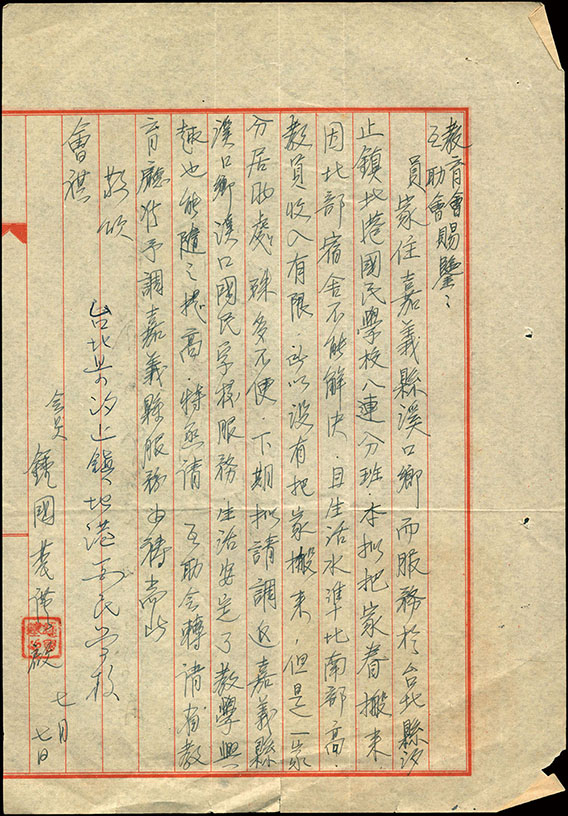 教育會
互助會賜鑒:
員家住嘉義縣溪口鄉而服務於台北縣汐
止鎮北港國民學校八連分班.本拟把家眷搬来.
因北部宿舍不能解决.且生活水準比南部高.
教員收入有限.所以没有把家搬来,但是一家
分居两處.殊多不便.下期拟請調返嘉義縣
溪口鄉溪口國民学校服務生活安定了教學興
趣也能隨之提高.特函請 互助会轉請省教
育廳准予調嘉義縣服務為禱耑此
敬頌
會祺
台北县汐止鎮北港国民学校
会员 鍾國 謹啟
七月
七日